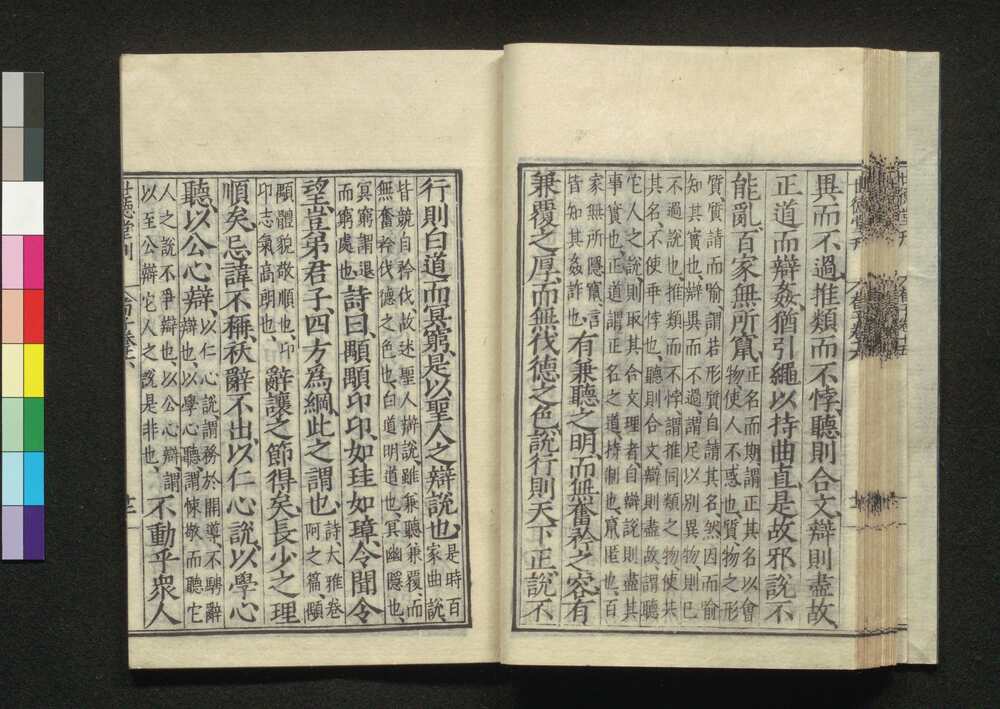 異而不過、推類而不悖、聽則合文、辯則盡故、
正道而辯姦、猶引繩以持曲直、是故邪說不
能亂、百家無所竄、正名而期謂正其名以會
物、使人不惑也、質物之形
質、質請而喻謂若形質自請其名然因而喻
知其實也、辨異而不過、謂足以別異物、則已
不過說也、推類而不悖、謂推同類之物、使共
其名、不使乖悖也、聽則合文、辯則盡故、謂聽
它人之說則取其合文理者、自辯說則盡其
事實也、正道謂正名之道、持制也、竄匿也、百
家無所隱竄、言
皆知其姦詐也、有兼聽之明、而無奮矜之容、有
兼覆之厚、而無伐德之色、說行則天下正、說不
行則白道而冥窮、是以聖人之辯說也、是時百
家曲說、
皆競自矜伐、故述聖人辨說雖兼聽兼覆、而
無奮矜伐德之色也、白道明道也、冥幽隱也、
冥窮謂退
而窮處也、詩曰、顒顒卬卬、如珪如璋、令聞令
望、豈弟君子、四方為綱、此之謂也、詩大雅卷
阿之篇、顒
顒體貌敬順也、卬
卬志氣高朗也、辭讓之節得矣、長少之理
順矣、忌諱不稱、祅辭不出、以仁心說、以學心
聽、以公心辯、以仁心說、謂務於開導、不騁辭
辯也、以學心聽、謂悚敬而聽它
人之說不爭辯也、以公心辯、謂
以至公辯它人之說是非也、不動乎衆人
世德堂刊